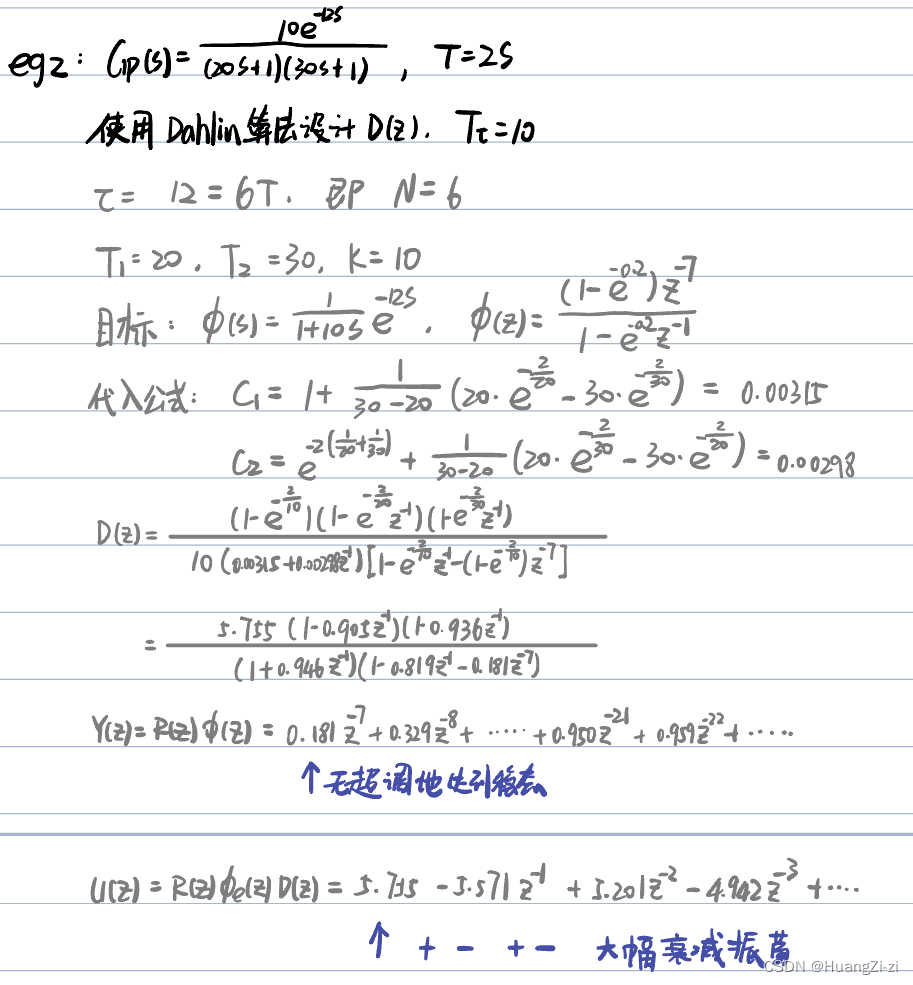 eg2: Gp(s)= 10e^{-12s} / (20s+1)(30s+1) , T=2S
使用 Dahlin 算法设计 D(z). Tτ=10
τ= 12=6T. 即 N=6
T₁=20. T₂=30, K=10
目标: φ(s)= 1/(1+10s) e^{-12s}. φ(z)= (1-e^{-0.2})z^{-7} / (1-e^{-0.2}z^{-1})
代入公式: C₁= 1+ 1/(30-20) (20·e^{-2/20} -30·e^{-2/30}) = 0.00315
C₂= e^{-2(1/20+1/30)} + 1/(30-20) (20·e^{-2/30} -30·e^{-2/20}) =0.00298
D(z)= (1-e^{-2/10})(1-e^{-2/20}z^{-1})(1-e^{-2/30}z^{-1}) / 10(0.00315+0.00298z^{-1})[1-e^{-2/10}z^{-1}-(1-e^{-2/10})z^{-7}]
= 5.755 (1-0.905z^{-1})(1-0.936z^{-1}) / (1+0.946z^{-1})(1-0.819z^{-1}-0.181z^{-7})
Y(z)=R(z)φ(z)= 0.181z^{-7}+0.329z^{-8}+ ····· +0.950z^{-21}+0.959z^{-22}+·····
↑无超调地达到稳态
U(z)=R(z)φe(z)D(z)= 5.755 -5.571z^{-1} +5.201z^{-2} -4.942z^{-3} +····
↑ + - + - 大幅衰减振荡
CSDN @HuangZi-zi